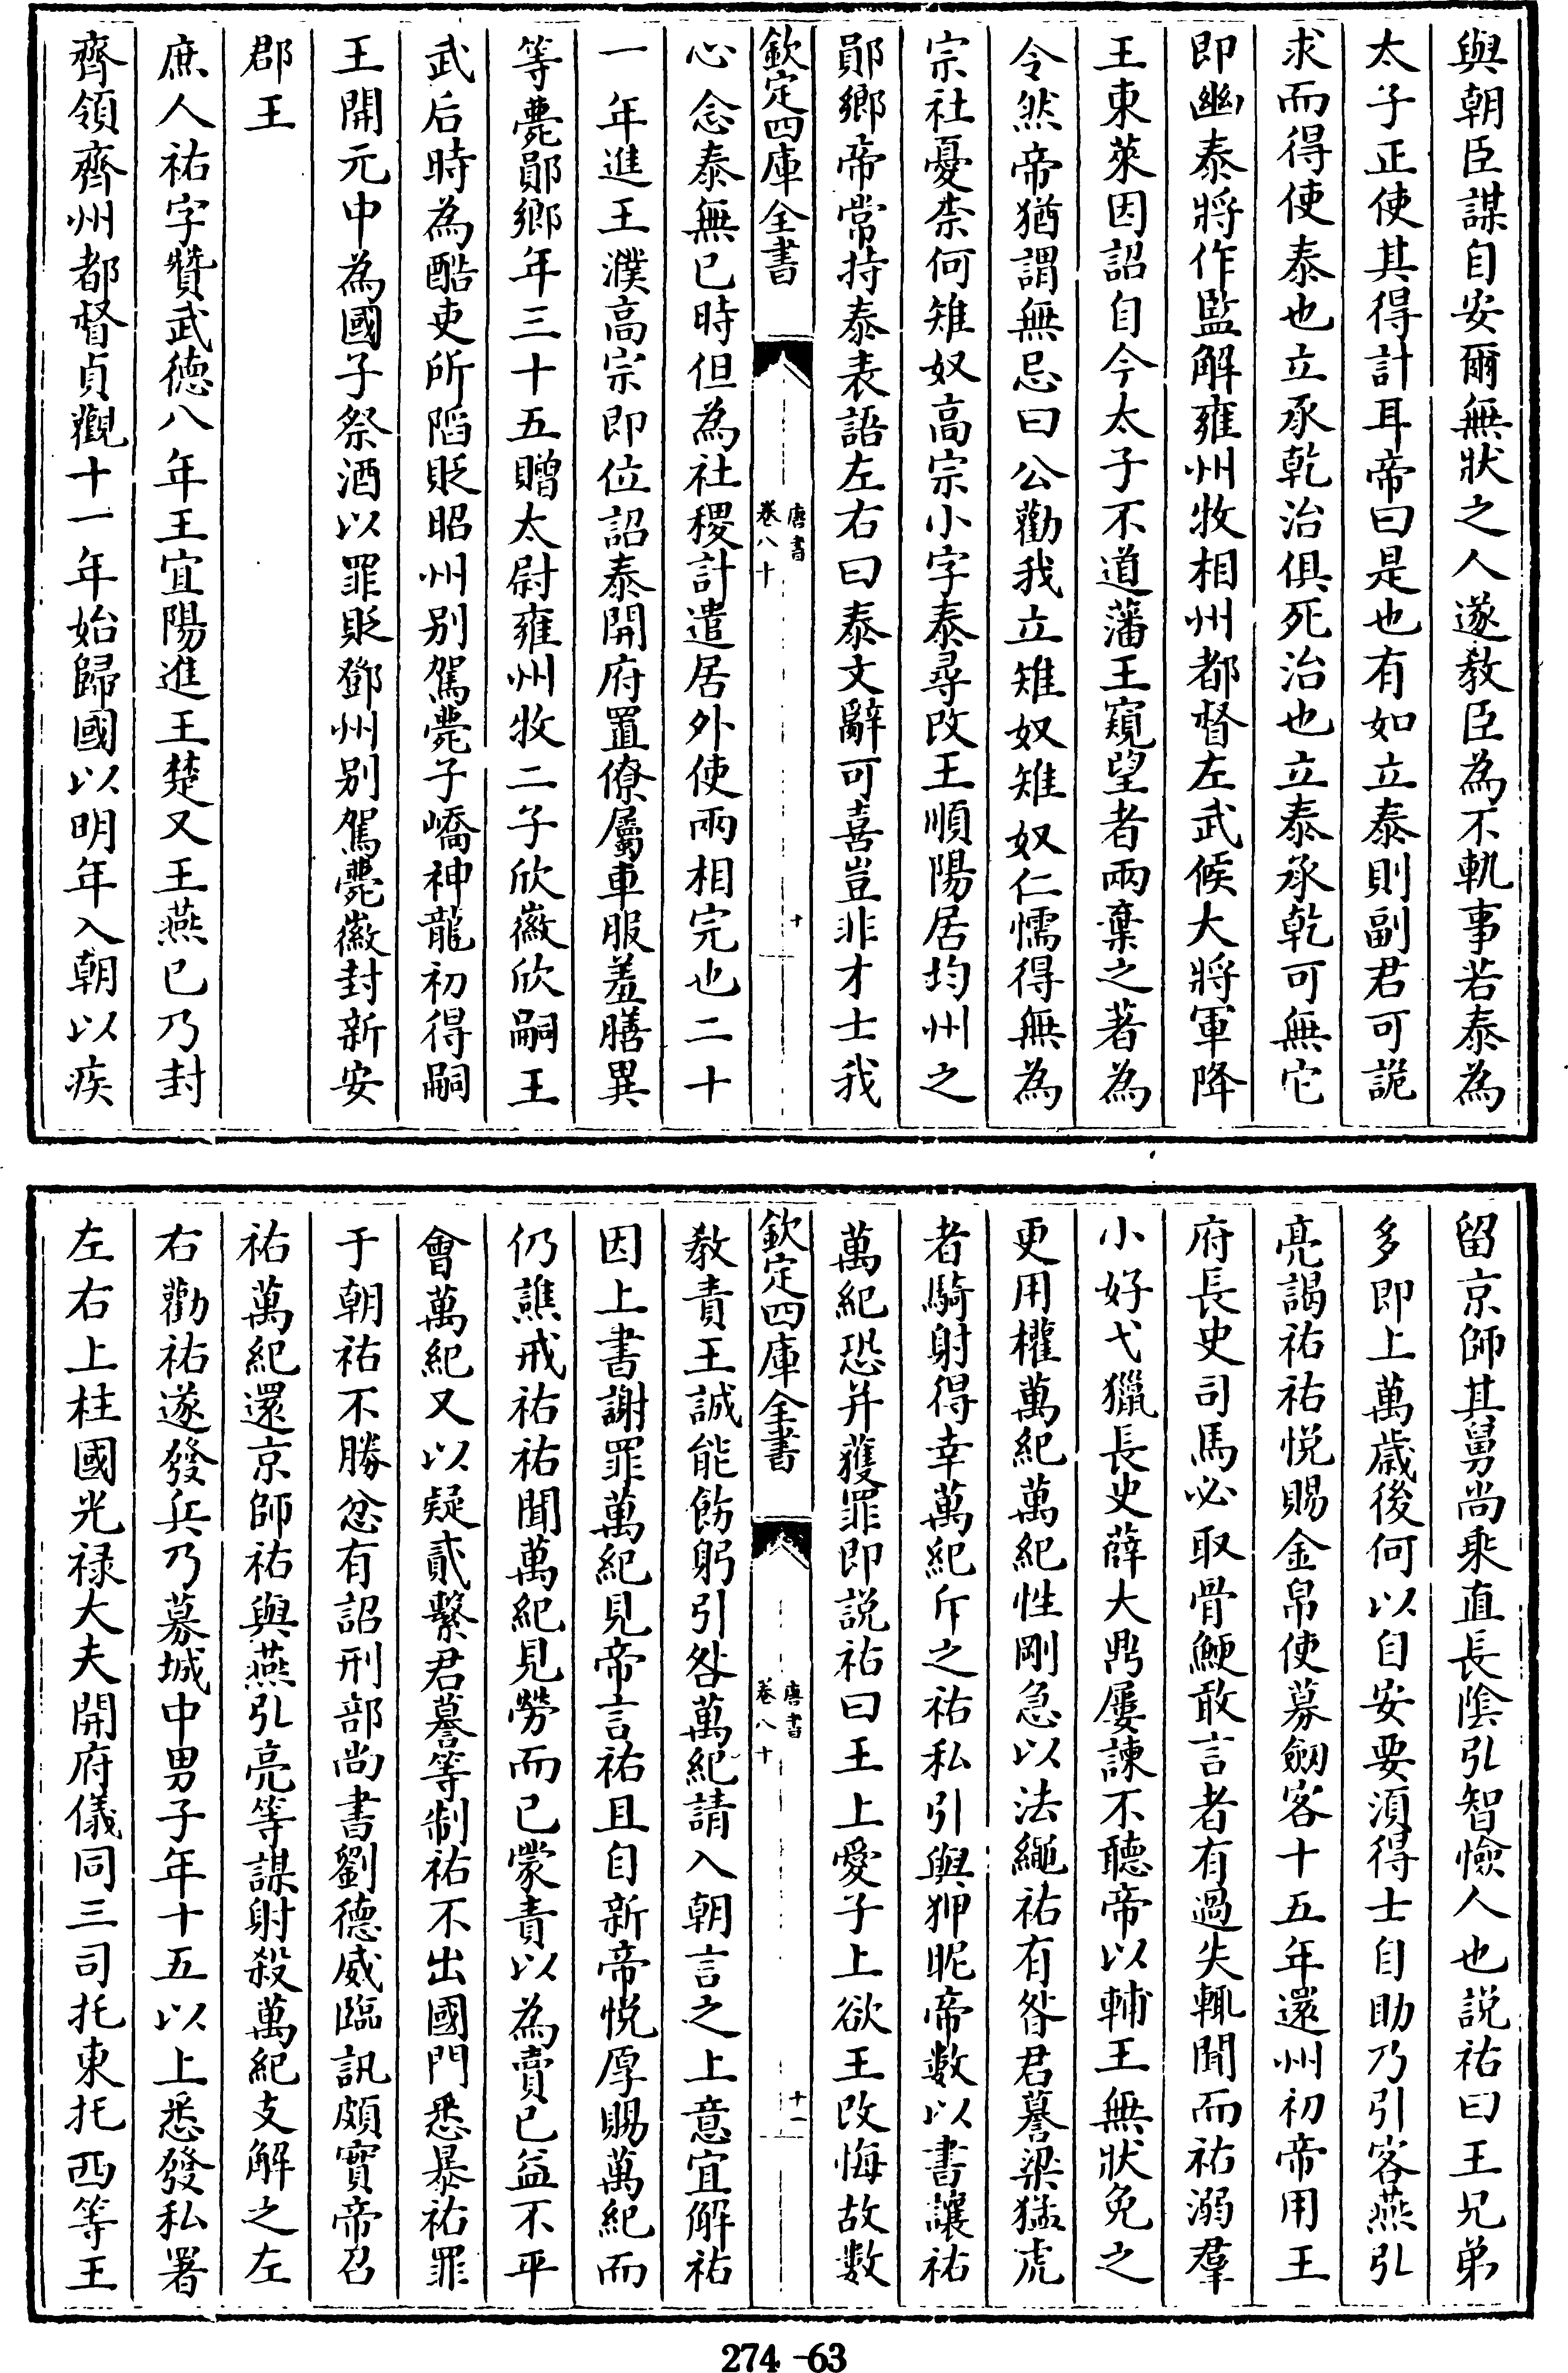 與朝臣謀自安爾無狀之人遂教臣為不軌事若泰為
太子正使其得計耳帝曰是也有如立泰則副君可詭
求而得使泰也立承乾治俱死治也立泰承乾可無它
即幽泰將作監解雍州牧相州都督左武候大將軍降
王東萊因詔自今太子不道藩王窺望者兩棄之著為
令然帝猶謂無忌曰公勸我立雉奴雉奴仁懦得無為
宗社憂柰何雉奴高宗小字泰尋改王順陽居均州之
鄖鄉帝常持泰表語左右曰泰文辭可喜豈非才士我
欽定四庫全書
唐書
卷八十
十
心念泰無已時但為社稷計遣居外使兩相完也二十
一年進王濮高宗即位詔泰開府置僚屬車服羞膳異
等薨鄖鄉年三十五贈太尉雍州牧二子欣徽欣嗣王
武后時為酷吏所陷貶昭州别駕薨子嶠神龍初得嗣
王開元中為國子祭酒以罪貶鄧州别駕薨徽封新安
郡王
庶人祐字贊武德八年王宜陽進王楚又王燕已乃封
齊領齊州都督貞觀十一年始歸國以明年入朝以疾
留京師其舅尚乘直長陰弘智憸人也説祐曰王兄弟
多即上萬歳後何以自安要湏得士自助乃引客燕弘
亮謁祐祐悦賜金帛使募劒客十五年還州初帝用王
府長史司馬必取骨鯁敢言者有過失輒聞而祐溺羣
小好弋獵長史薛大鼎屢諫不聽帝以輔王無狀免之
更用權萬紀萬紀性剛急以法繩祐有昝君謩梁猛虎
者騎射得幸萬紀斥之祐私引與狎昵帝數以書讓祐
萬紀恐并獲罪即説祐曰王上愛子上欲王改悔故數
欽定四庫全書
唐書
卷八十
十一
教責王誠能飭躬引咎萬紀請入朝言之上意宜解祐
因上書謝罪萬紀見帝言祐且自新帝悦厚賜萬紀而
仍譙戒祐祐聞萬紀見勞而已蒙責以為賣已益不平
會萬紀又以疑貳繫君謩等制祐不出國門悉暴祐罪
于朝祐不勝忿有詔刑部尚書劉德威臨訊頗實帝召
祐萬紀還京師祐與燕弘亮等謀射殺萬紀支解之左
右勸祐遂發兵乃募城中男子年十五以上悉發私署
左右上柱國光禄大夫開府儀同三司托東托西等王
274-63